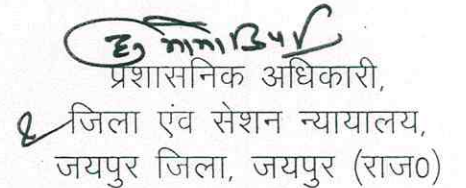 प्रशासनिक अधिकारी,
जिला एंव सेशन न्यायालय,
जयपुर जिला, जयपुर (राज0)